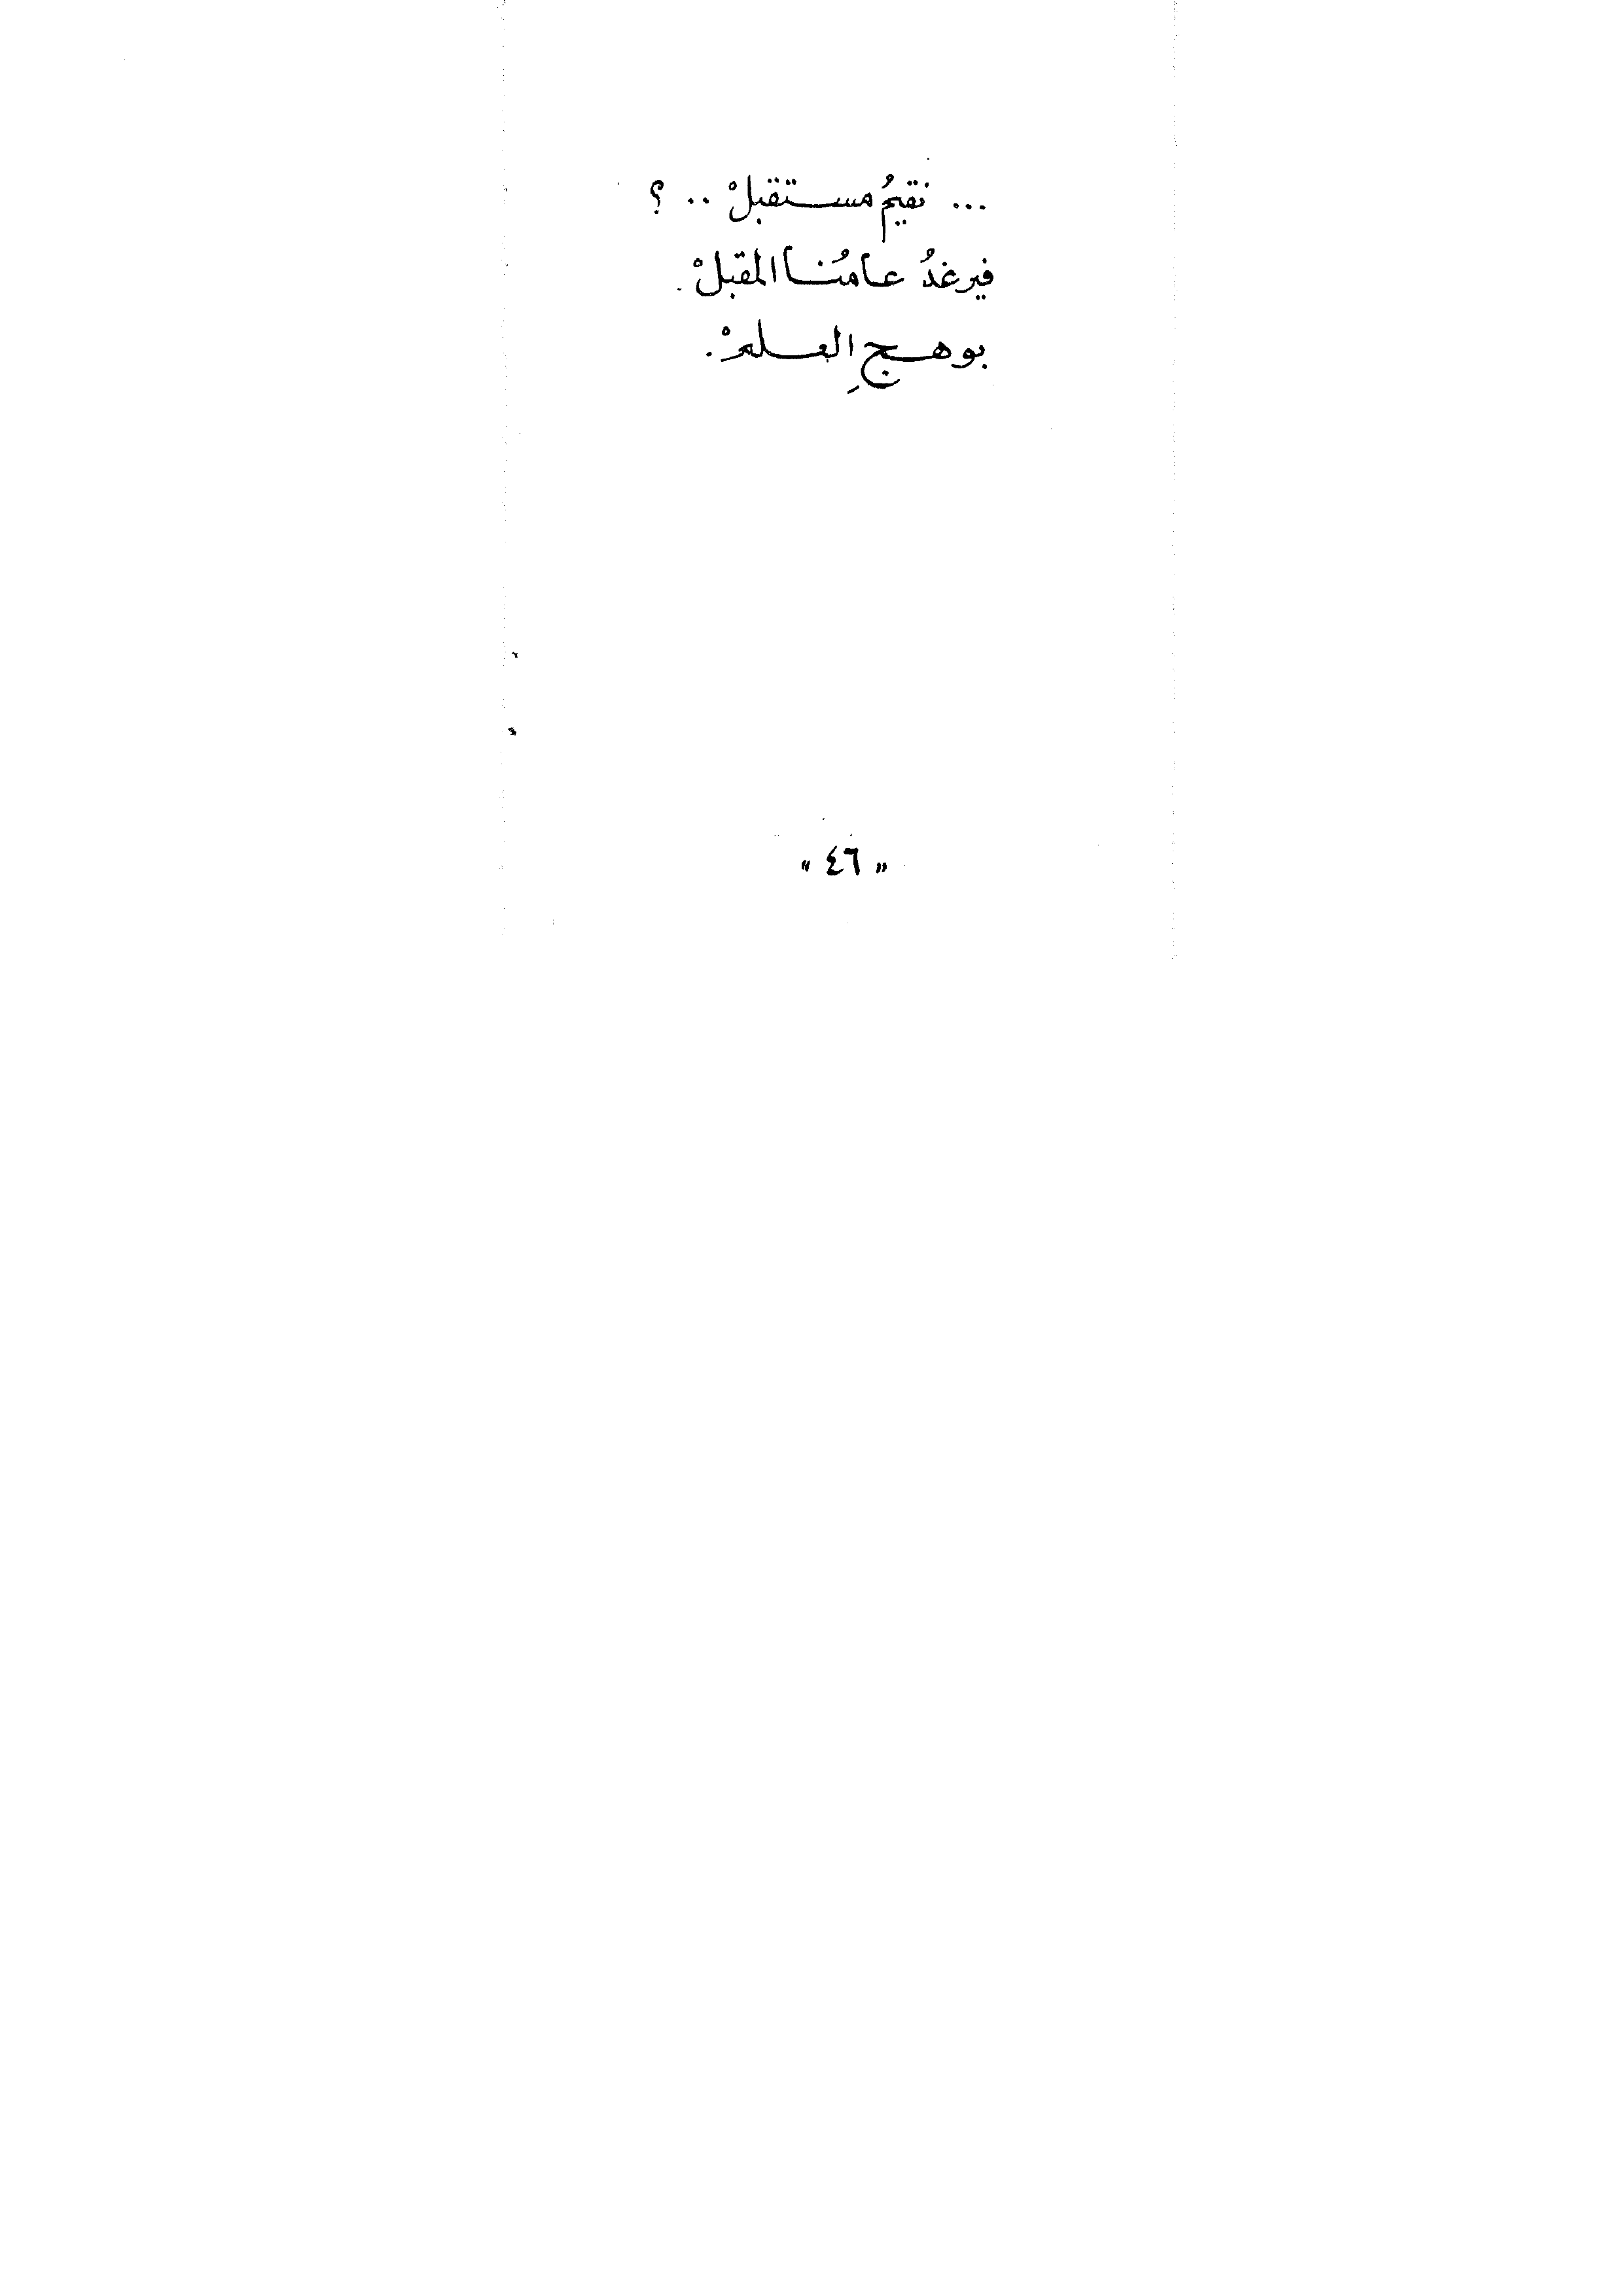 ... نقيمُ مستقبلْ .. ؟
فيرغدُ عامُنا المقبلْ.
بوهجِ العلمْ.
« ٤٦ »